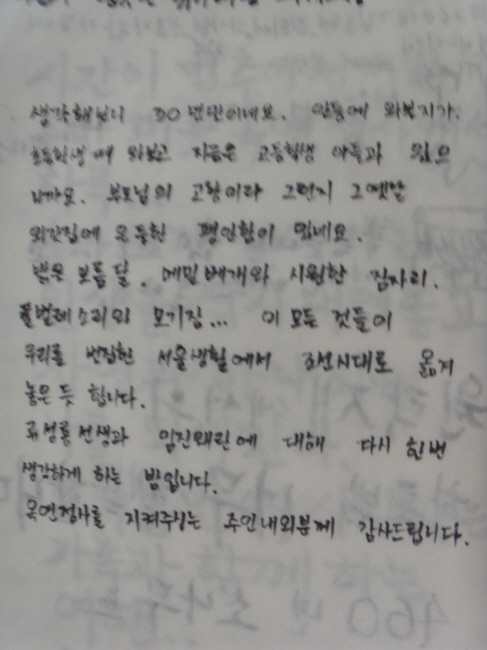 생각해보니 30년만이네요. 안동에 와본지가.
초등학생 때 와보고 지금은 고등학생 아들과 왔으
니까요. 부모님의 고향이라 그런지 그 옛날
외갓집에 온듯한 편안함이 있네요.
밝은 보름달. 메밀베개와 시원한 잠자리.
풀벌레소리와 모기장... 이 모든 것들이
우리를 번잡한 서울생활에서 조선시대로 옮겨
놓은 듯 합니다.
류성룡선생과 임진왜란에 대해 다시 한번
생각하게 하는 밤입니다.
옥연정사를 지켜주시는 주인내외분께 감사드립니다.
460년